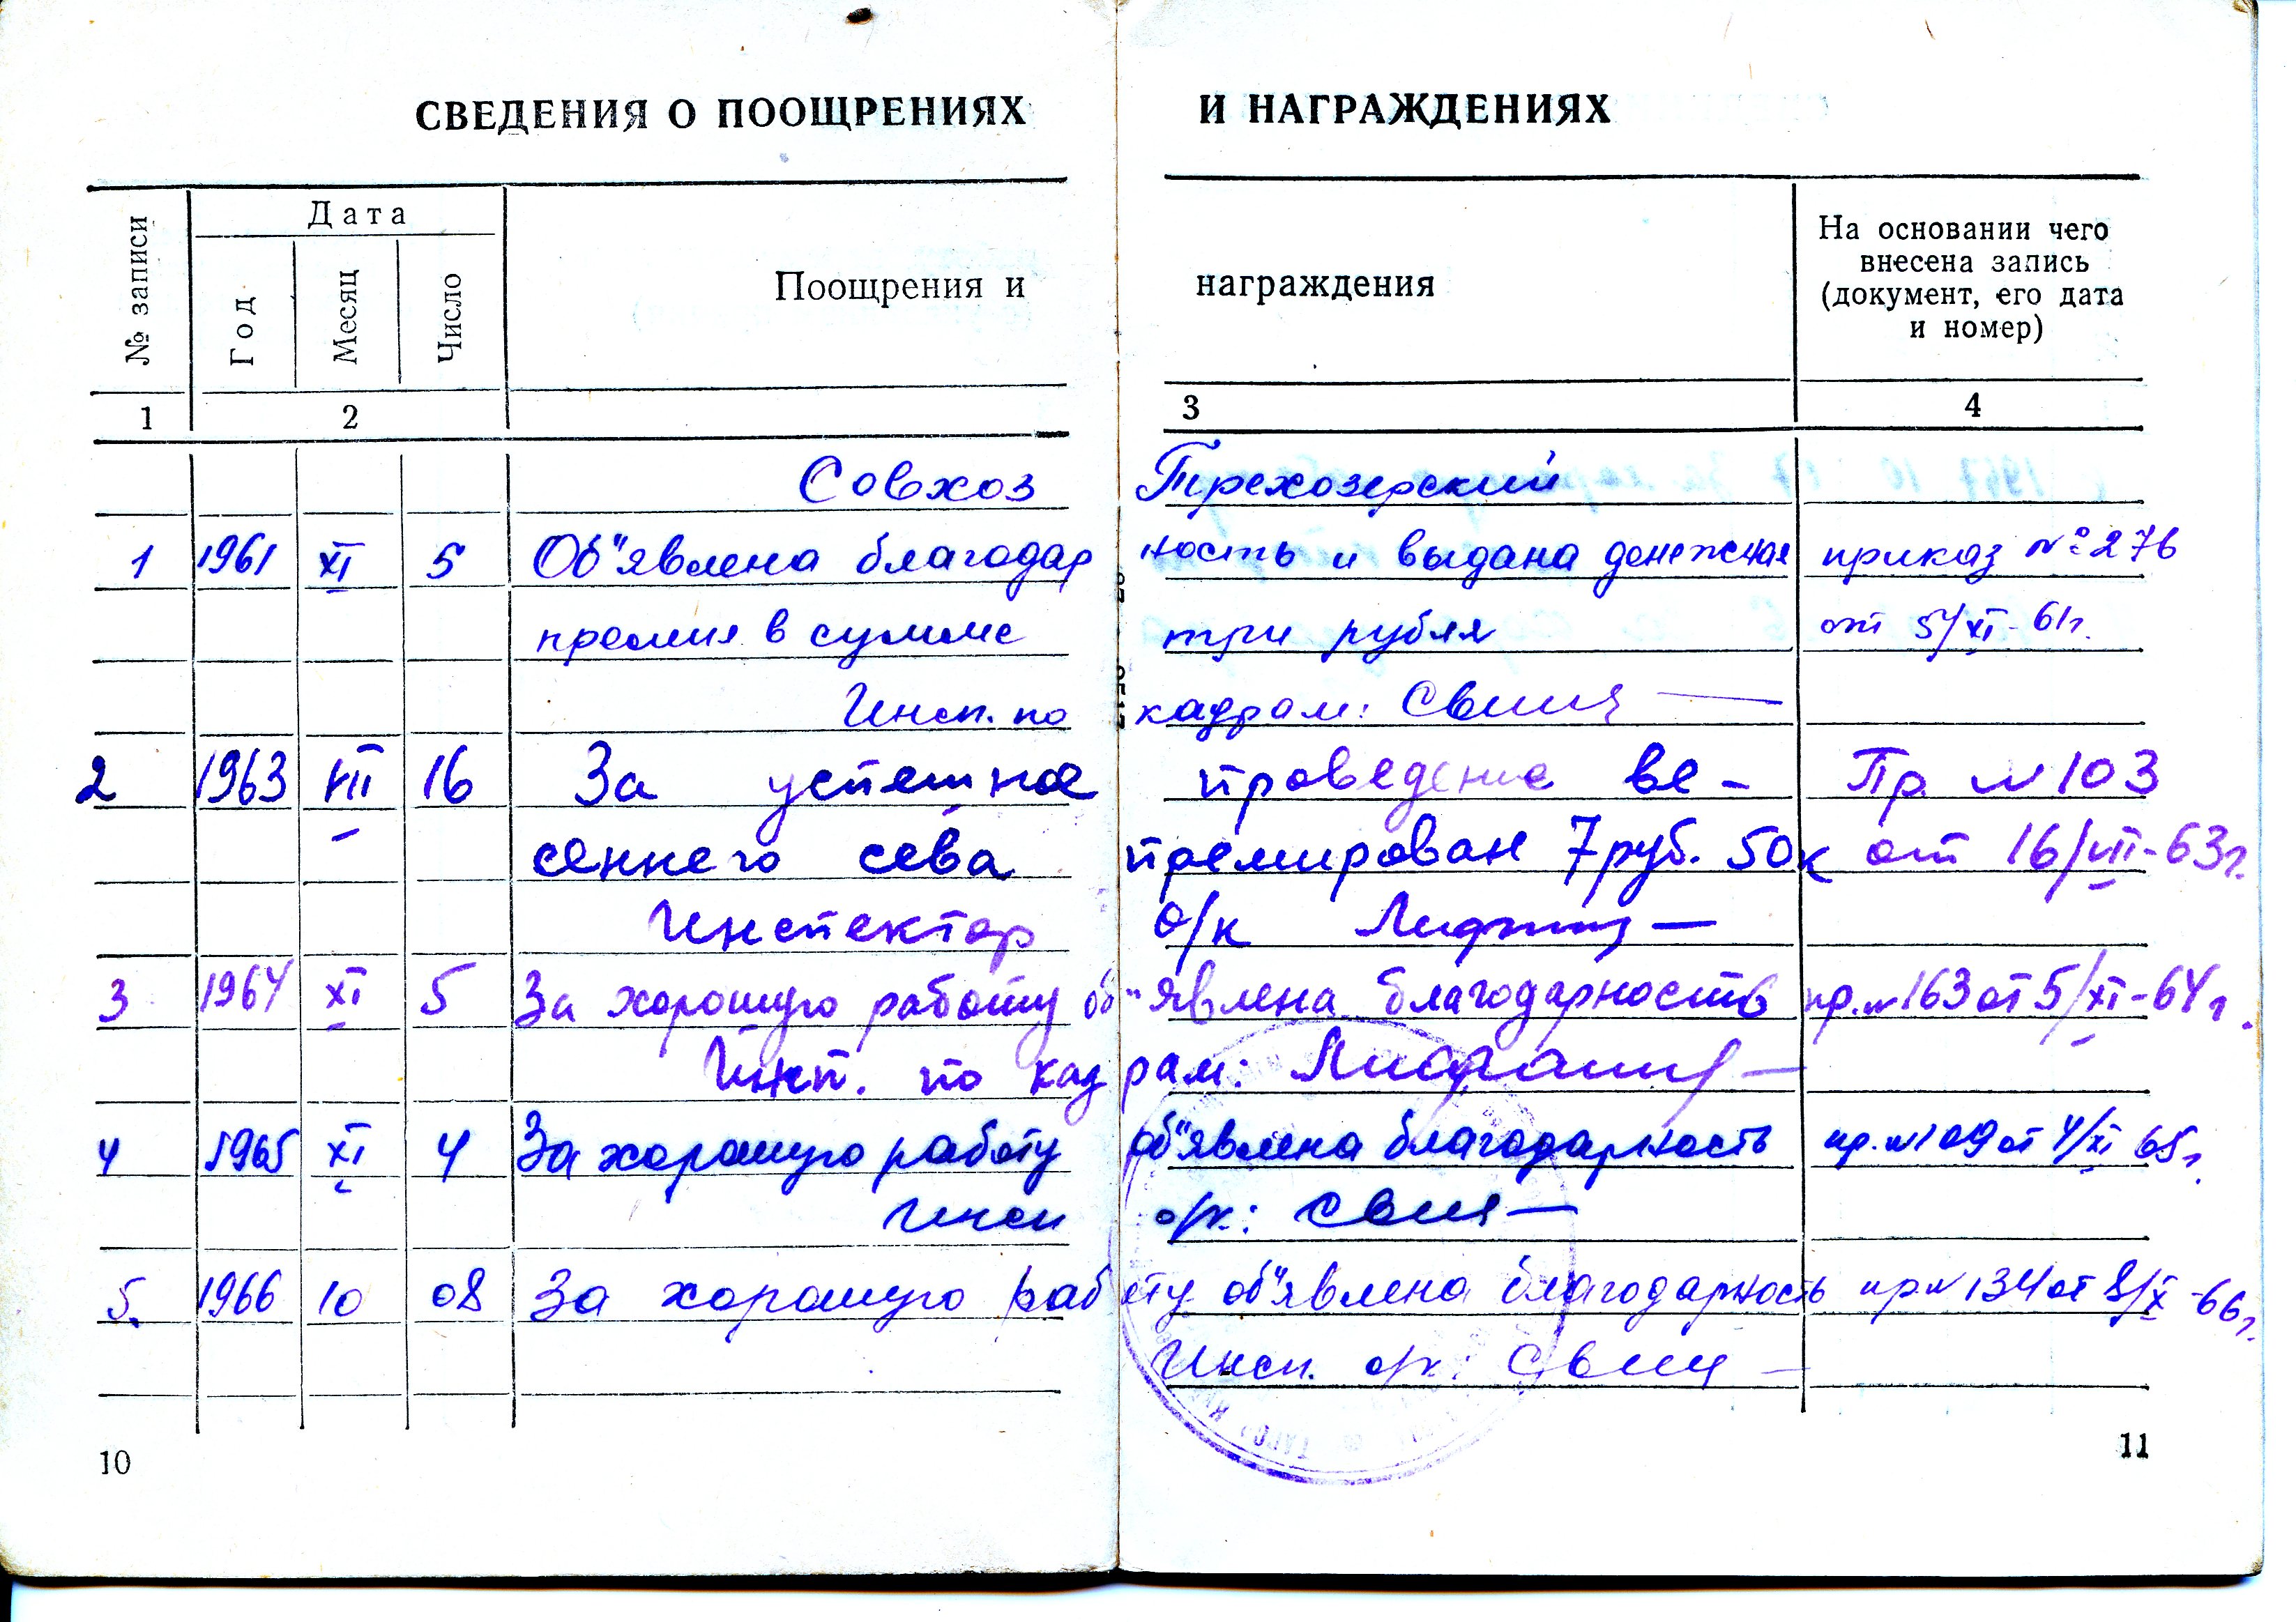 СВЕДЕНИЯ О ПООЩРЕНИЯХ И НАГРАЖДЕНИЯХ
№ записи
Дата
Год
Месяц
Число
Поощрения и награждения
На основании чего
внесена запись
(документ, его дата
и номер)
1 2 3 4
Совхоз Трехозерский
1 1961 XI 5 Об"явлена благодар ность и выдана денежная приказ № 276
премия в сумме три рубля от 5/XI-61г.
Инсп. по кадрам:
2 1963 VII 16 За успешное проведение ве- Пр. N 103
сеннего сева премирован 7 руб. 50к от 16/VII-63г.
Инспектор о/к
3 1964 XI 5 За хорошую работу об"явлена благодарность пр. N 163 от 5/XI-64г.
Инсп. по кадрам:
4 1965 XI 4 За хорошую работу об"явлена благодарность пр. N 109 от 4/XI 65г.
Инсп о/к:
5. 1966 10 08 За хорошую работу об"явлена благодарность пр N 134 от 8/X-66г.
Инсп. о/к:
10 11